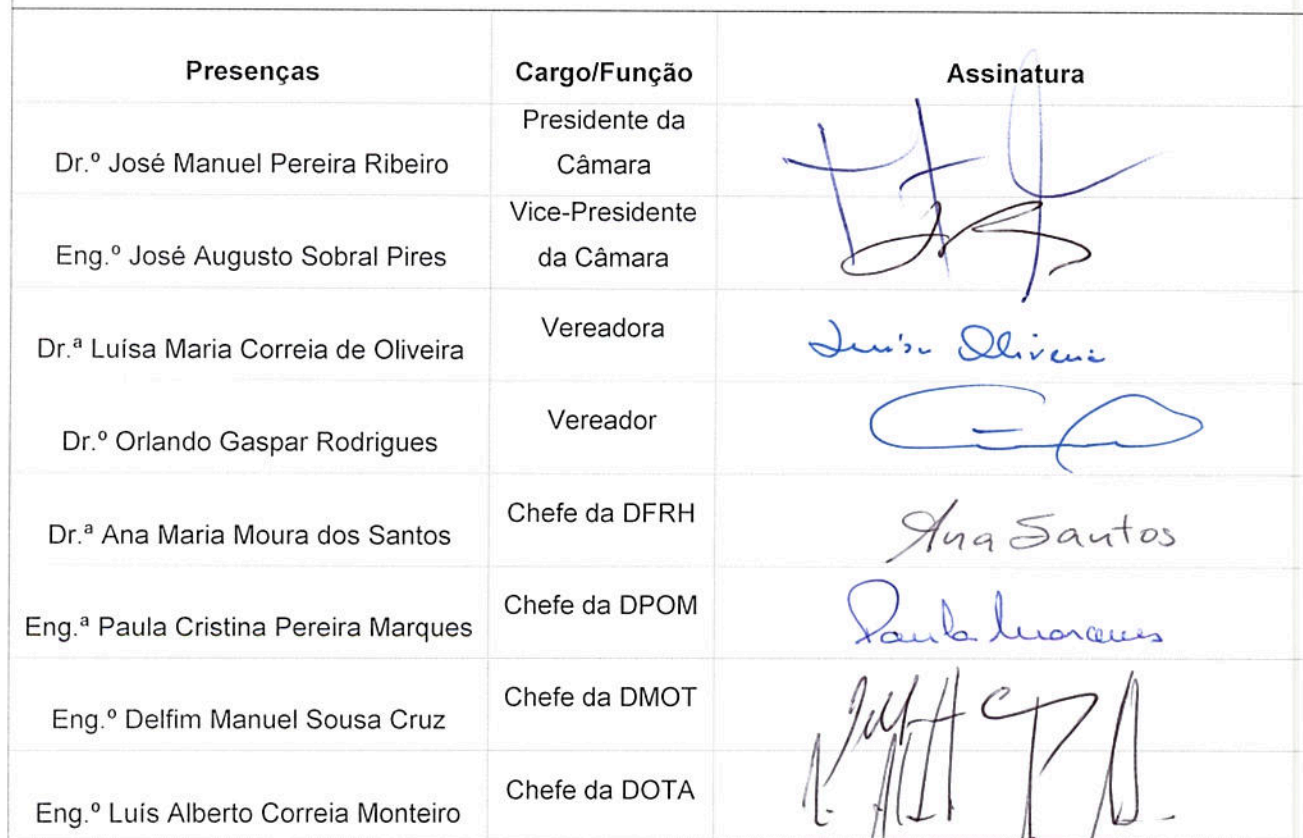 Presenças Cargo/Função Assinatura
Dr.º José Manuel Pereira Ribeiro Presidente da Câmara
Eng.º José Augusto Sobral Pires Vice-Presidente da Câmara
Dr.ª Luísa Maria Correia de Oliveira Vereadora Luísa Oliveira
Dr.º Orlando Gaspar Rodrigues Vereador
Dr.ª Ana Maria Moura dos Santos Chefe da DFRH Ana Santos
Eng.ª Paula Cristina Pereira Marques Chefe da DPOM Paula Marques
Eng.º Delfim Manuel Sousa Cruz Chefe da DMOT
Eng.º Luís Alberto Correia Monteiro Chefe da DOTA